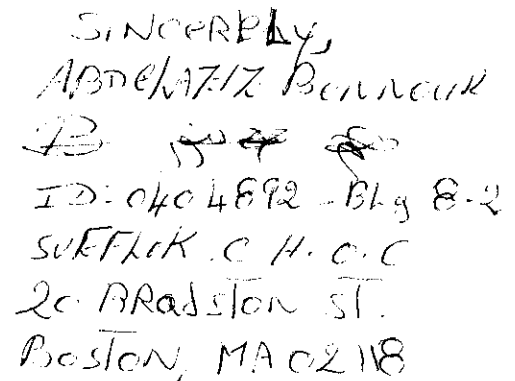 SINCERELY,
ABDELAZIZ
ID: 0404892 - Bldg 8-2
SUFFLIK C.H.O.C
20 BRadSTON ST.
BOSTON, MA 02118